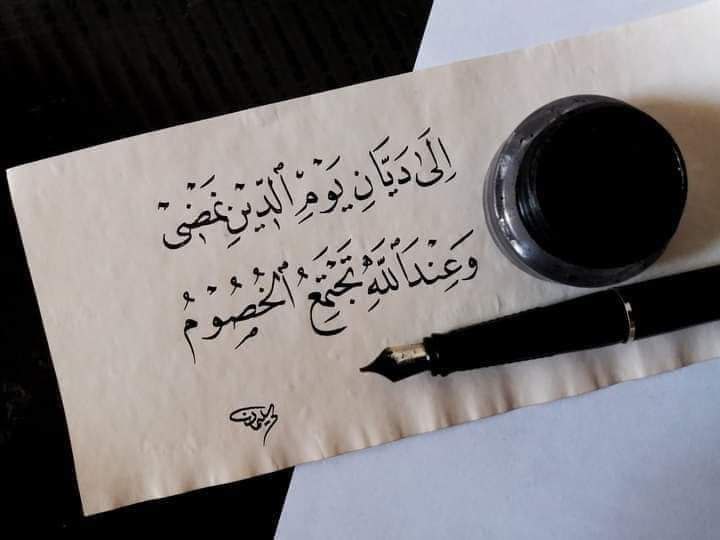 إِلَىٰ دَيَّانِ يَوْمِ ٱلدِّيْنِ نَمْضِىْ
وَعِنْدَ ٱللَّهِ تَجْتَمِعُ ٱلْخُصُوْمُ